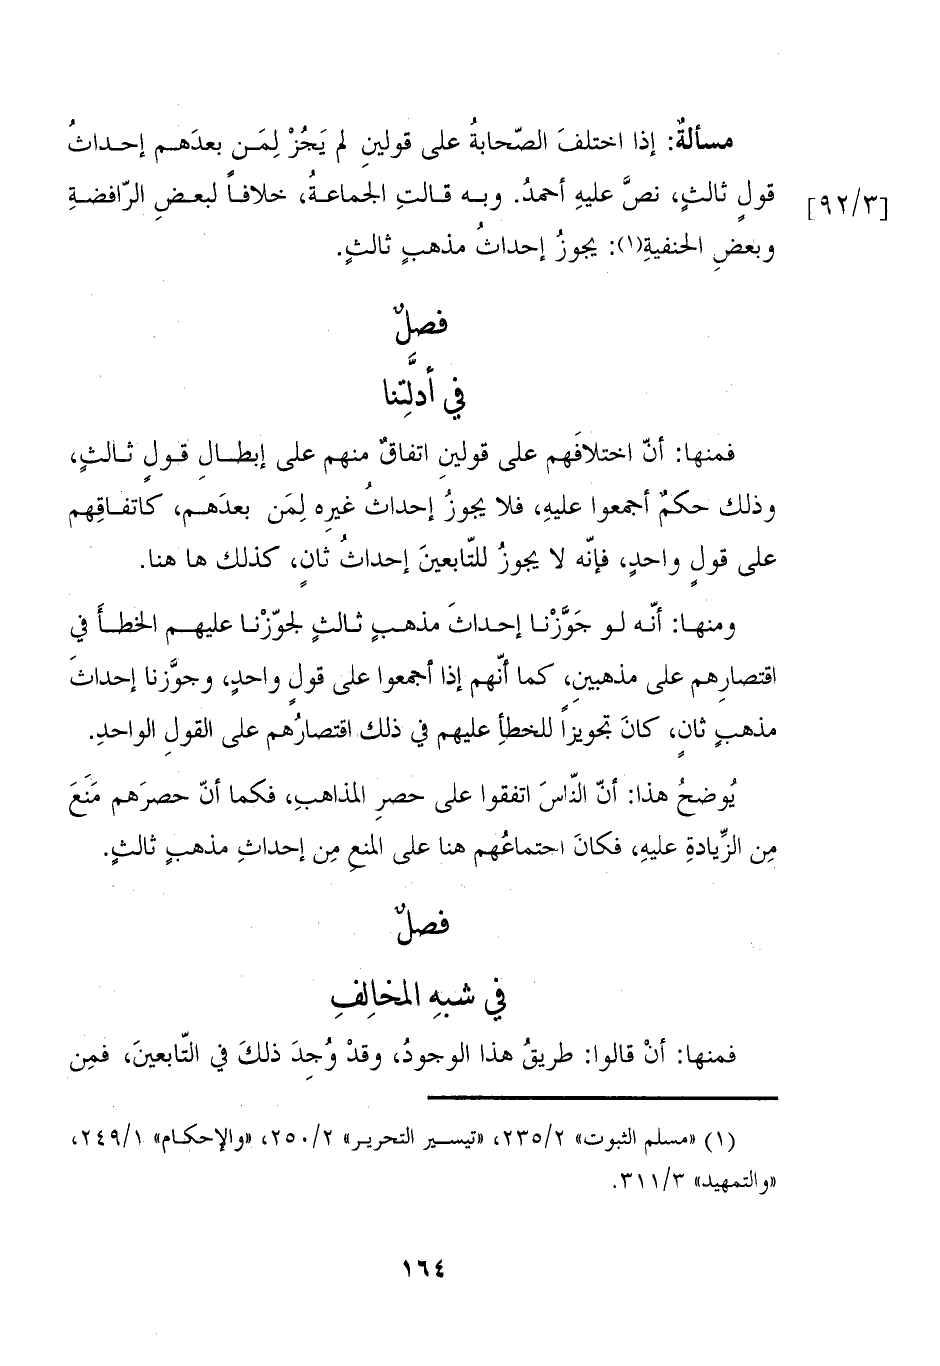 مسألةٌ: إذا اختلفَ الصّحابةُ على قولينِ لم يَجُزْ لِمَن بعدَهم إحداثُ
قولٍ ثالثٍ، نصَّ عليهِ أحمدُ. وبه قالتِ الجماعةُ، خلافاً لبعضِ الرّافضةِ
[٩٢/٣]
وبعضِ الحنفيةِ(١): يجوزُ إحداثُ مذهبٍ ثالثٍ.
فصلٌ
في أدلَّتِنا
فمنها: أنّ اختلافَهم على قولينِ اتفاقٌ منهم على إبطالِ قولٍ ثالثٍ،
وذلك حكمٌ أجمعوا عليهِ، فلا يجوزُ إحداثُ غيرِه لِمَن بعدَهم، كاتفاقِهم
على قولٍ واحدٍ، فإنّه لا يجوزُ للتّابعينَ إحداثُ ثانٍ، كذلك ها هنا.
ومنها: أنّه لو جَوَّزْنا إحداثَ مذهبٍ ثالثٍ لجوّزْنا عليهم الخطأَ في
اقتصارِهم على مذهبينِ، كما أنّهم إذا أجمعوا على قولٍ واحدٍ، وجوَّزنا إحداثَ
مذهبٍ ثانٍ، كانَ تجويزاً للخطأِ عليهم في ذلك اقتصارُهم على القولِ الواحدِ.
يُوضحُ هذا: أنّ النّاسَ اتفقوا على حصرِ المذاهبِ، فكما أنّ حصرَهم مَنَعَ
مِن الزِّيادةِ عليهِ، فكانَ اجتماعُهم هنا على المنعِ مِن إحداثِ مذهبٍ ثالثٍ.
فصلٌ
في شبهِ المخالِفِ
فمنها: أنْ قالوا: طريقُ هذا الوجودُ، وقدْ وُجِدَ ذلكَ في التّابعينَ، فمِن
(١) «مسلم الثبوت» ٢٣٥/٢، «تيسير التحرير» ٢٥٠/٢، «والإحكام» ٢٤٩/١،
«والتمهيد» ٣١١/٣.
١٦٤